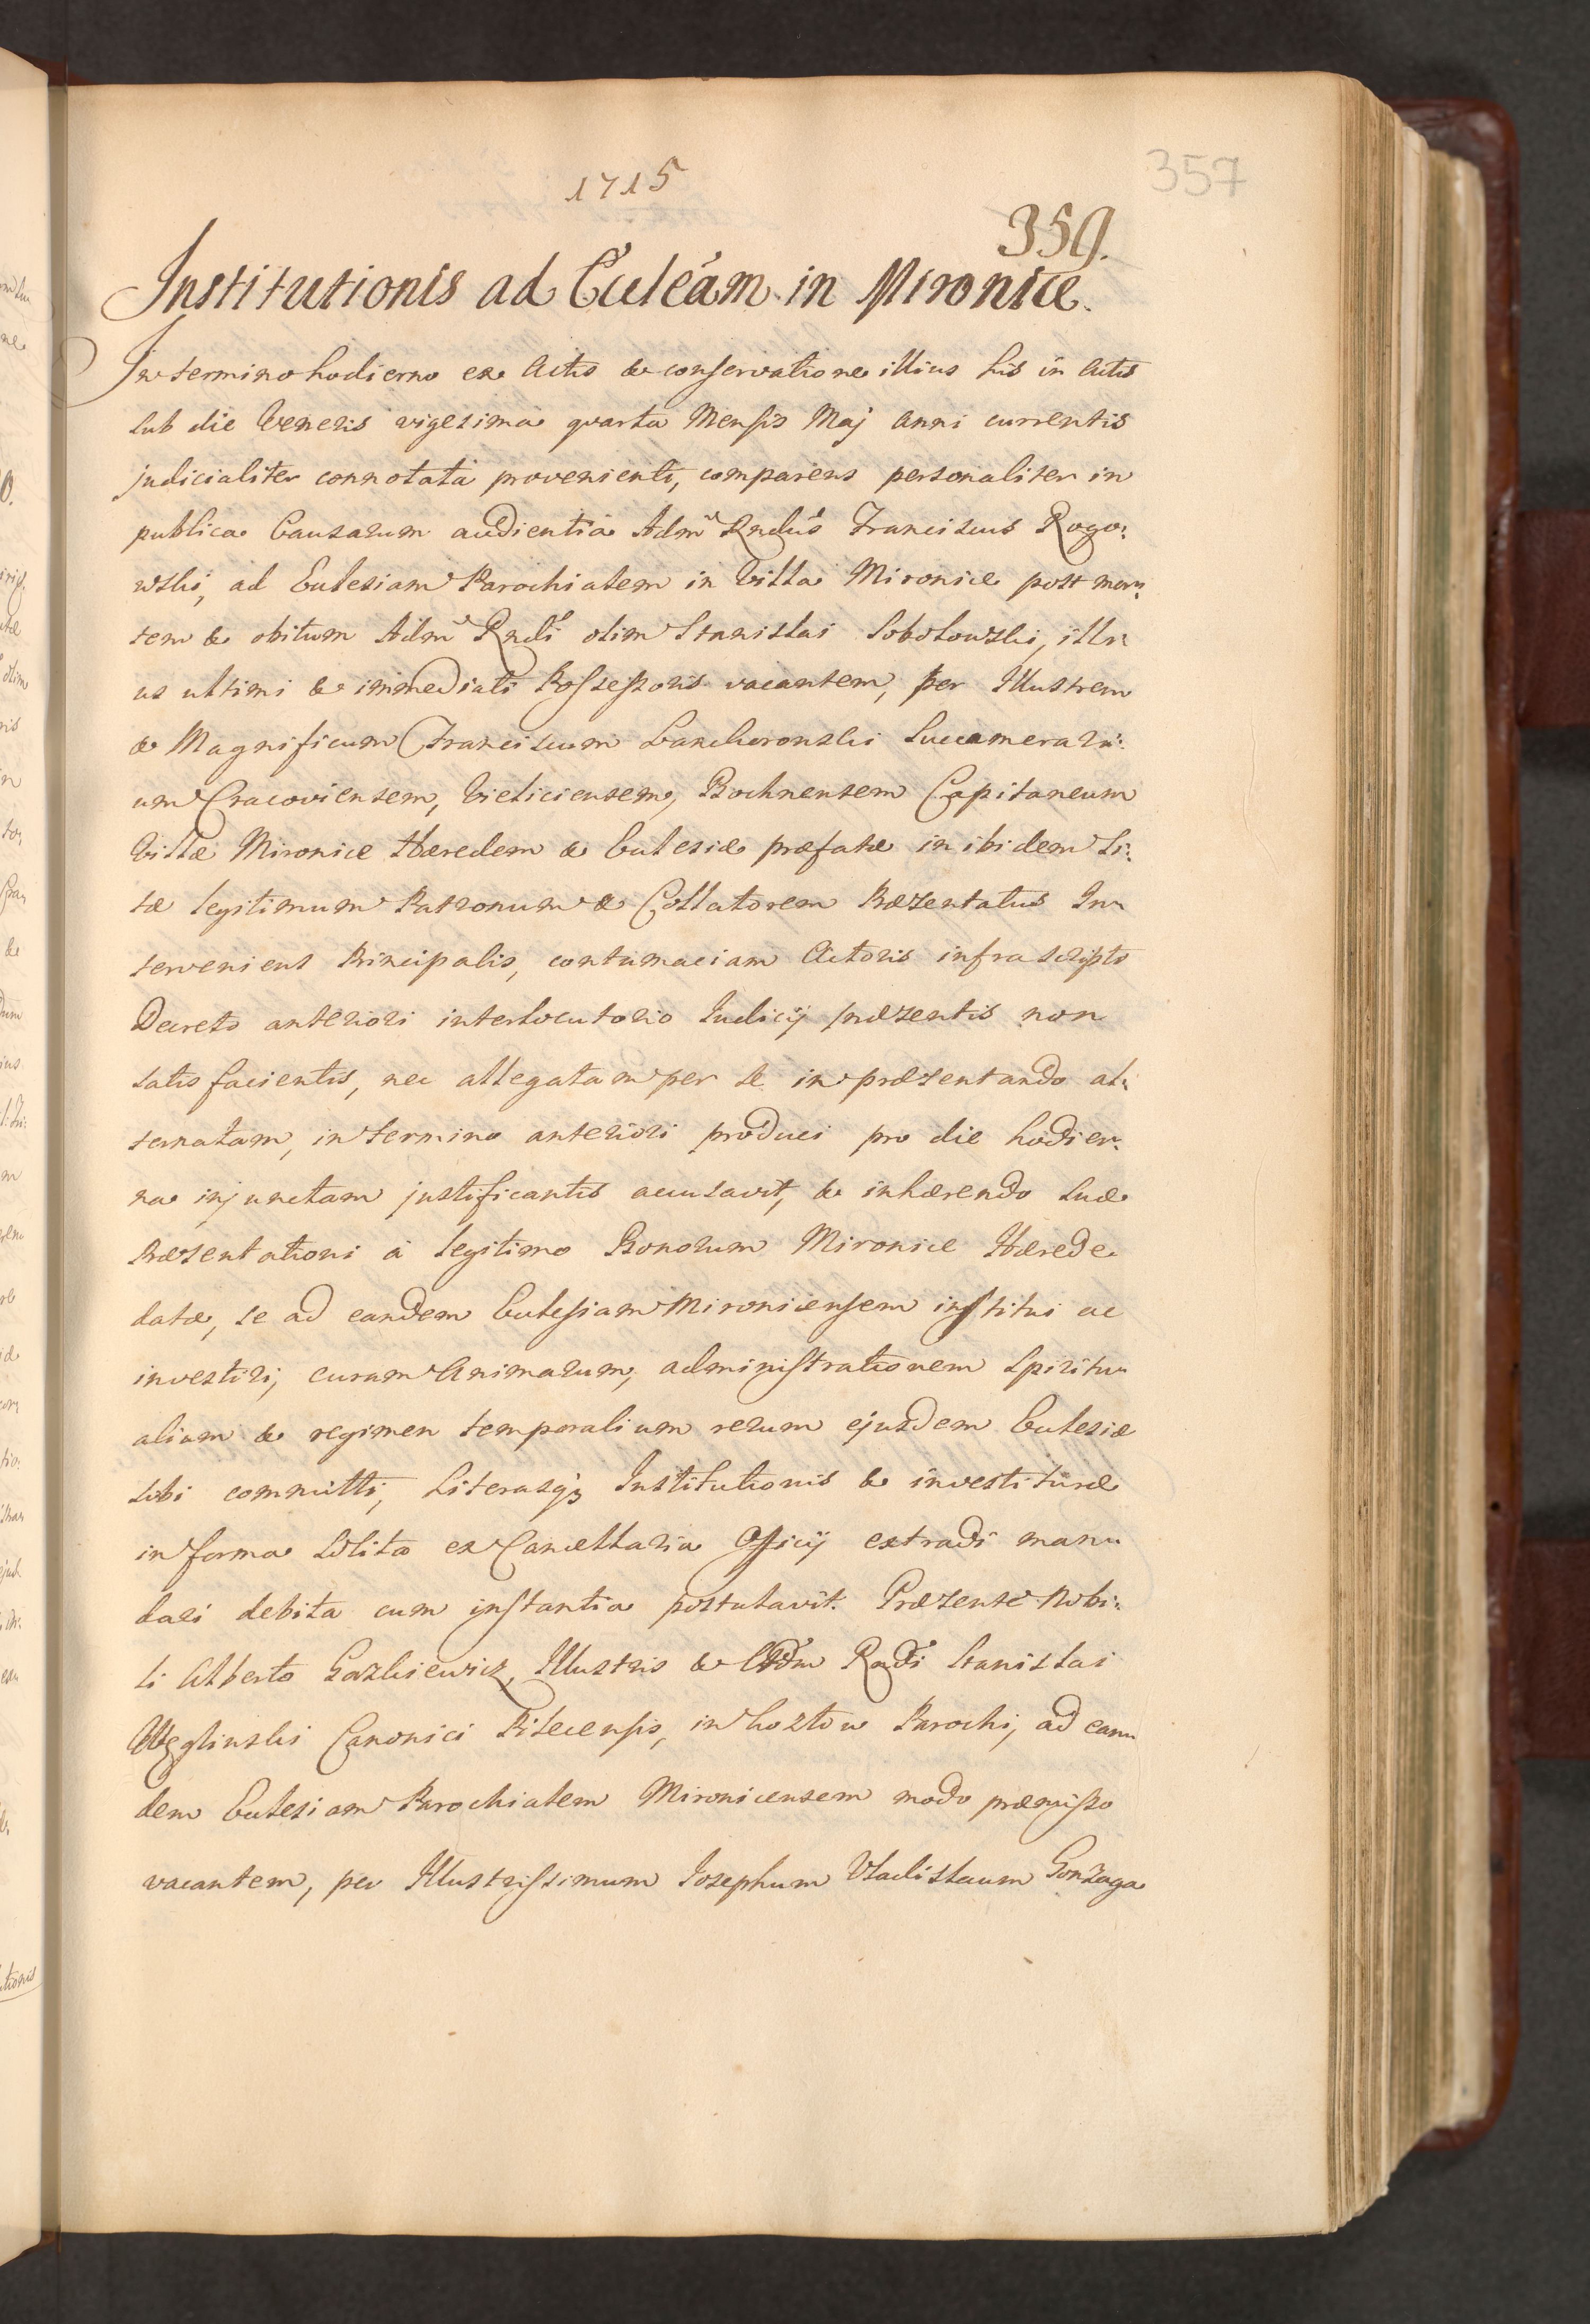 1715
357
359.
Institutionis ad Eccleâm in Mironice.
In termino hodierno ex Actis & conservatione illius his in Actis
sub die Veneris vigesima quarta Mensis Maj Anni currentis
judicialiter connotata provenienti, comparens personaliter in
publica Causarum audientia Adm Rndus Franciscus Rogo:
wski, ad Ecclesiam Parochialem in Villa Mironice post mor:
tem & obitum Adm Rndi olim Stanislai Sobolowski, illi:
us ultimi & immediati Possessoris vacantem, per Illustrem
& Magnificum Franciscum Lanckoronski Succamerari:
um Cracoviensem, Vieliciensem, Bochnensem Capitaneum
Villæ Mironice Hæredem & Ecclesiæ præfatæ in ibidem si:
tæ legitimum Patronum & Collatorem Præsentatus In:
terveniens Principalis, contumaciam Actoris infrascripti
Decreto anteriori interlocutorio Judicij præsentis non
satisfacientis, nec allegatam per se in præsentando al:
ternatam, in termino anteriori produci pro die hodier:
na injunctam justificantis accusavit, & inhærendo suæ
Præsentationi à legitimo Bonorum Mironice Hærede
datæ, se ad eandem Ecclesiam Mironicensem institui ac
investiri, curam Animarum, administrationem Spiritu:
alium & regimen temporalium rerum ejusdem Ecclesiæ
sibi committi, Literasq; Institutionis & investituræ
in forma solita ex Cancellaria Officij extradi man:
dari debita cum instantia postulavit. Præsente Nobi:
li Alberto Gazkiewicz, Illustris & Adm Rndi Stanislai
Węglinski Canonici Pilecensis, in Koztow Parochi, ad ean:
dem Ecclesiam Parochialem Mironicensem modo præmisso
vacantem, per Illustrissimum Josephum Vladislaum Gonzaga